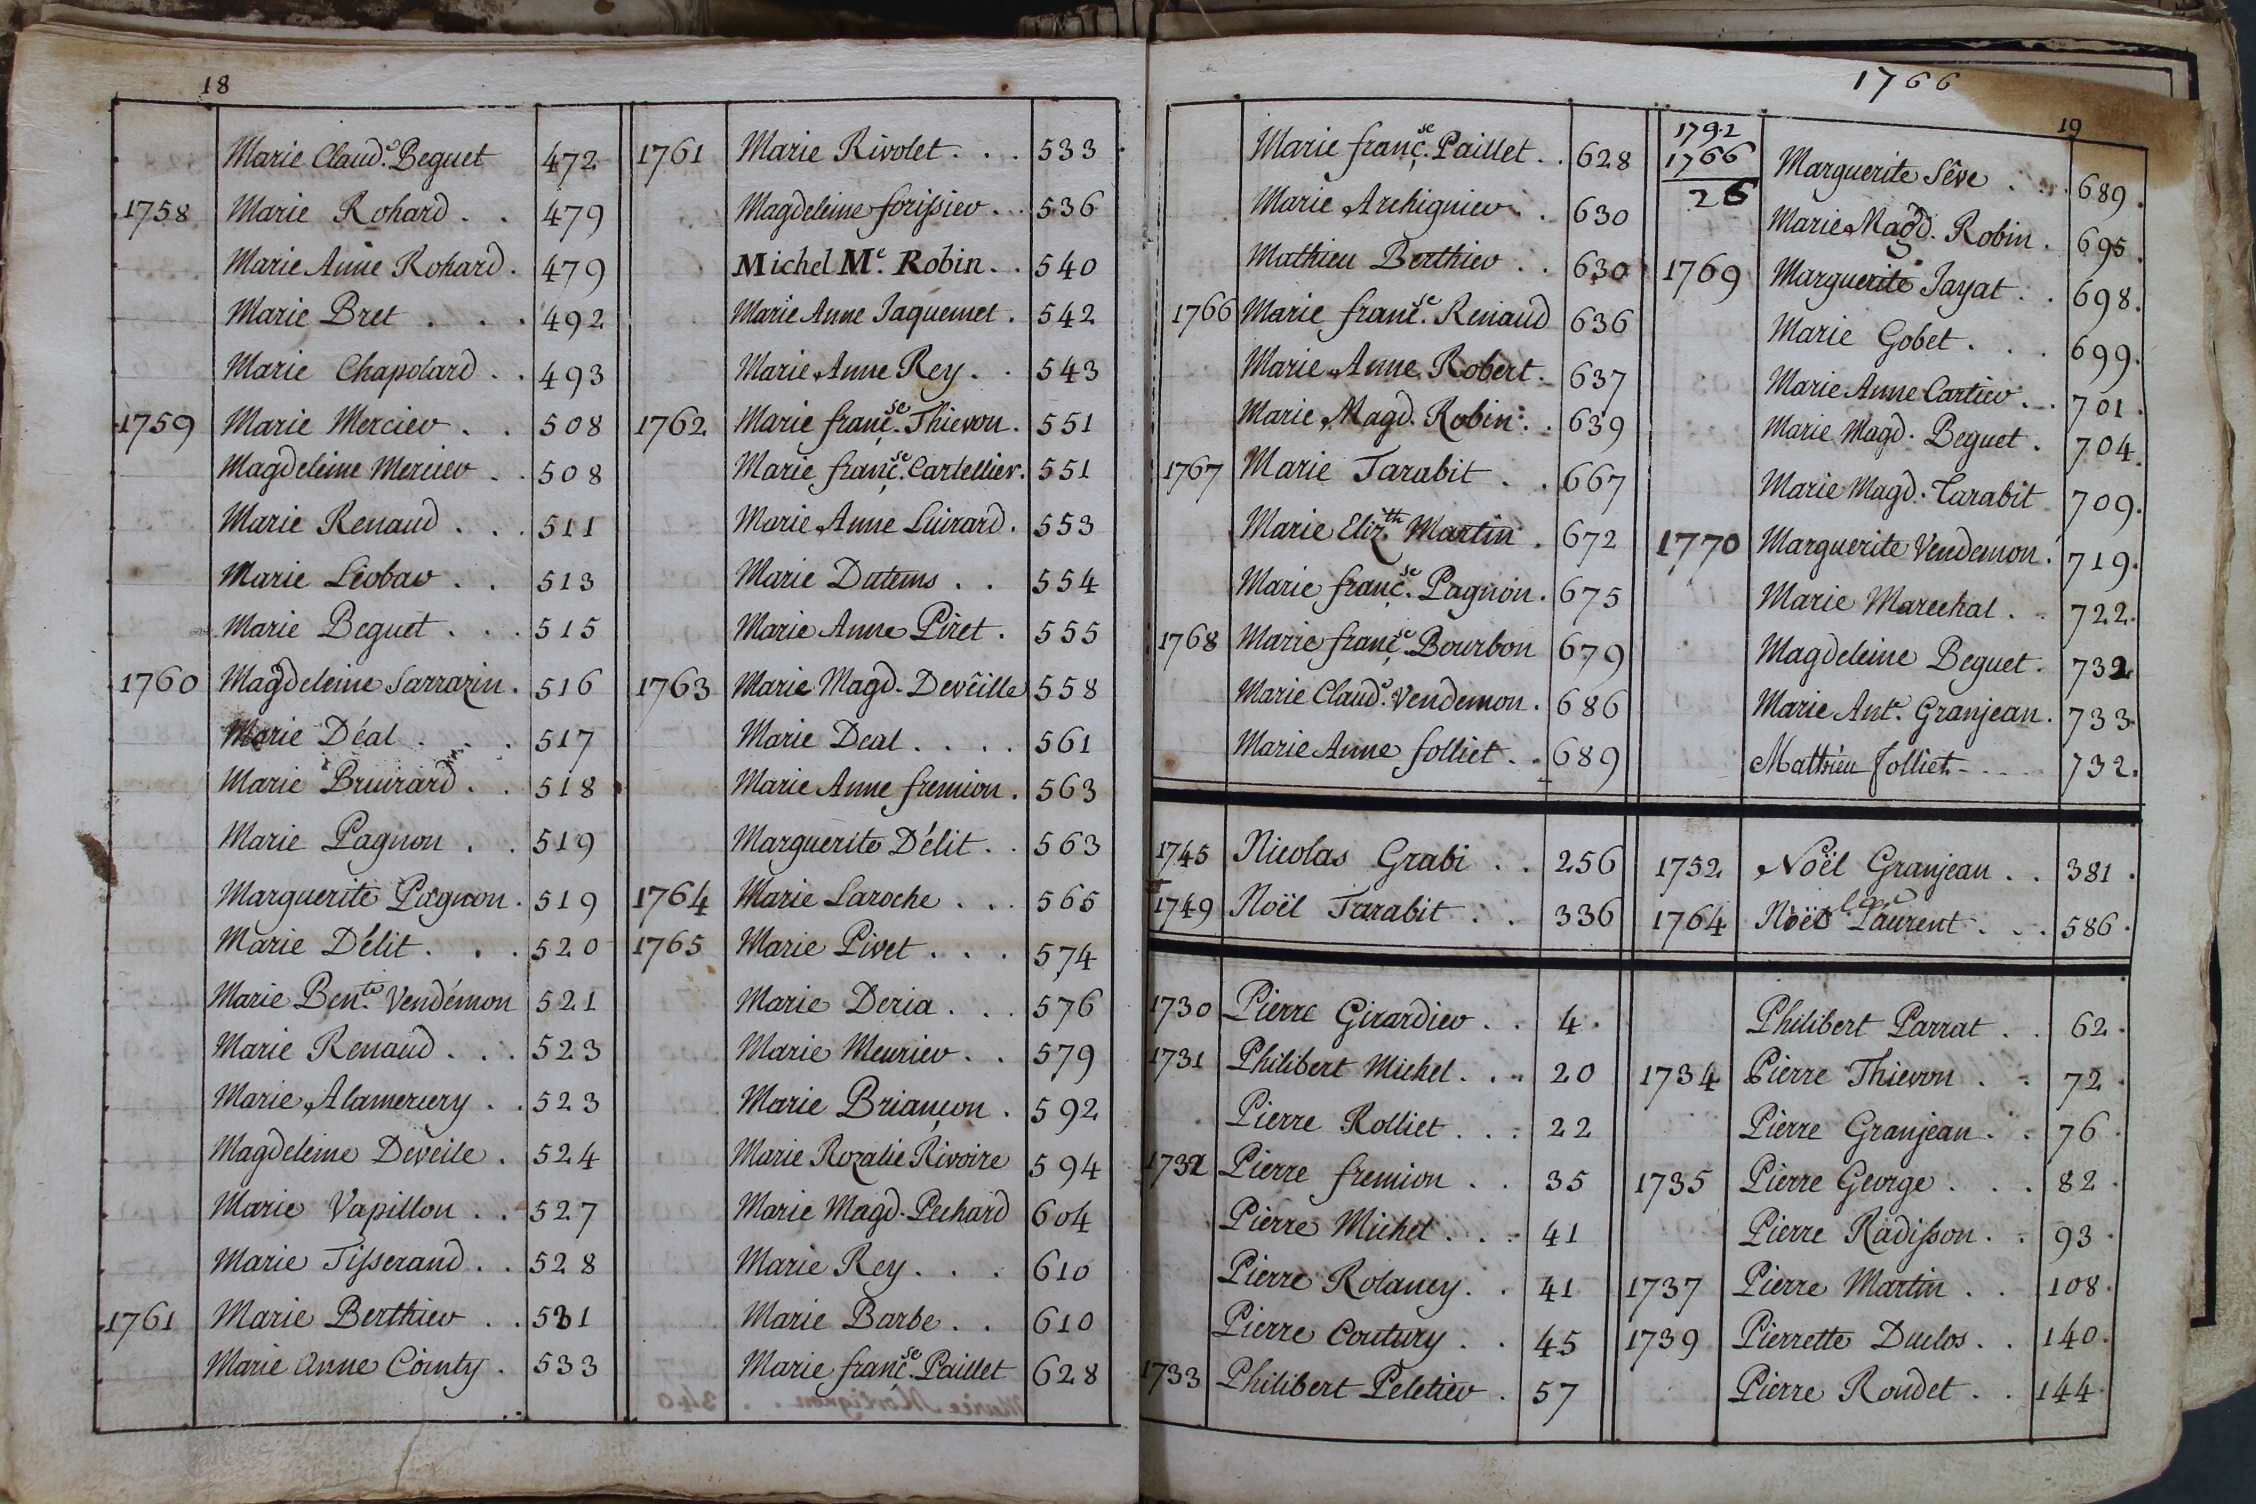 18
Marie Claud.e Beguet 472
1758 Marie Rohard . . 479
Marie Anne Rohard . 479
Marie Bret . . . 492
Marie Chapolard . . 493
1759 Marie Mercier . . 508
Magdeleine Mercier . . 508
Marie Renaud . . . 511
Marie Léobar . . 513
Marie Beguet . . . 515
1760 Magdeleine Sarrazin . 516
Marie Déal . . . 517
Marie Bruirard . . 518
Marie Pagnon . . 519
Marguerite Pagnon . 519
Marie Délit . . . 520
Marie Ben.te Vendémon 521
Marie Renaud . . . 523
Marie Alamercery . . 523
Magdeleine Deveile . 524
Marie Vapillon . . 527
Marie Tisserand . . 528
1761 Marie Berthier . . 531
Marie Anne Cointy . 533
1761 Marie Rivolet . . . 533
Magdeleine forissier . . 536
Michel M.e Robin . . 540
Marie Anne Jaquemet . 542
Marie Anne Rey . . 543
1762 Marie franç.se Thievon . 551
Marie franç.se Cartellier . 551
Marie Anne Luirard . 553
Marie Dutems . . 554
Marie Anne Piret . 555
1763 Marie Magd. Deveille 558
Marie Deal . . . . 561
Marie Anne fremion . 563
Marguerite Délit . . 563
1764 Marie Laroche . . . 565
1765 Marie Pivet . . . 574
Marie Deria . . . 576
Marie Meurier . . 579
Marie Briançon . 592
Marie Rozalie Rivoire 594
Marie Magd. Pechard 604
Marie Rey . . . 610
Marie Barbe . . 610
Marie franç.se Paillet 628
1766
19
Marie franç.se Paillet . . 628
Marie Archignier . . 630
Mathieu Berthier . . 630
1766 Marie franç.se Renaud 636
Marie Anne Robert . 637
Marie Magd. Robin . . 639
1767 Marie Tarabit . . 667
Marie Eliz.th Martin . 672
Marie franç.se Pagnon . 675
1768 Marie franç.se Bourbon 679
Marie Claud.e Vendemon . 686
Marie Anne folliet . . 689
1792
1766
26
Marguerite Sêve . . . 689 .
Marie Magd. Robin . 695 .
1769 Marguerite Jayat . . 698 .
Marie Gobet . . . 699 .
Marie Anne Cartier . . 701 .
Marie Magd. Beguet . 704 .
Marie Magd. Tarabit 709 .
1770 Marguerite Vendemon . 719 .
Marie Marechal . . 722 .
Magdeleine Beguet . 732
Marie Ant. Granjean . 733
Mathieu Jolliet . . . . 732 .
1745 Nicolas Grabi . . 256
1749 Noël Tarabit . . 336
1752 Noël Granjean . . 381 .
1764 Noël Laurent . . . 586 .
1730 Pierre Girardier . . 4 .
1731 Philibert Michel . . . 20
Pierre Rolliet . . . 22
1732 Pierre fremion . . 35
Pierre Michel . . . 41
Pierre Rolancy . . 41
Pierre Coutury . . 45
1733 Philibert Peletier . 57
Philibert Parrat . . 62 .
1734 Pierre Thievon . . 72 .
Pierre Granjean . . 76 .
1735 Pierre George . . . 82 .
Pierre Radisson . . 93 .
1737 Pierre Martin . . 108 .
1739 Pierrette Duclos . . 140 .
Pierre Rondet . . 144 .